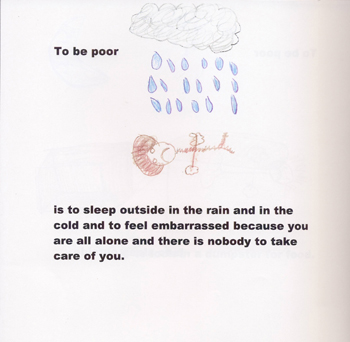 To be poor
is to sleep outside in the rain and in the
cold and to feel embarrassed because you
are all alone and there is nobody to take
care of you.